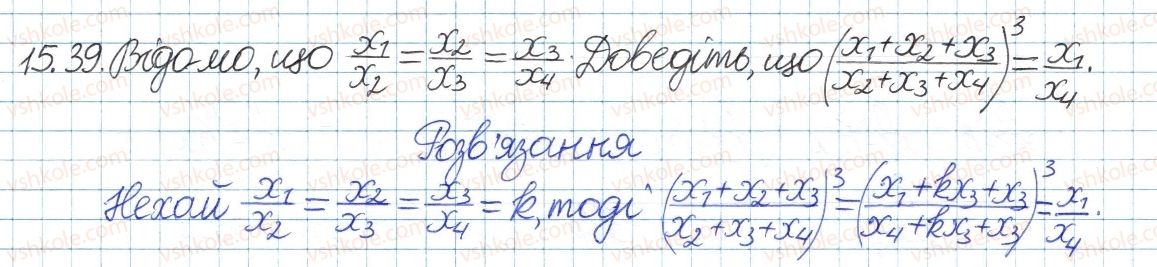 15.39. Відомо, що x₁/x₂ = x₂/x₃ = x₃/x₄. Доведіть, що ((x₁+x₂+x₃)/(x₂+x₃+x₄))³ = x₁/x₄.
Розв'язання
Нехай x₁/x₂ = x₂/x₃ = x₃/x₄ = k, тоді ((x₁+x₂+x₃)/(x₂+x₃+x₄))³ = ((x₁+kx₃+x₃)/(x₄+kx₃+x₃))³ = x₁/x₄.